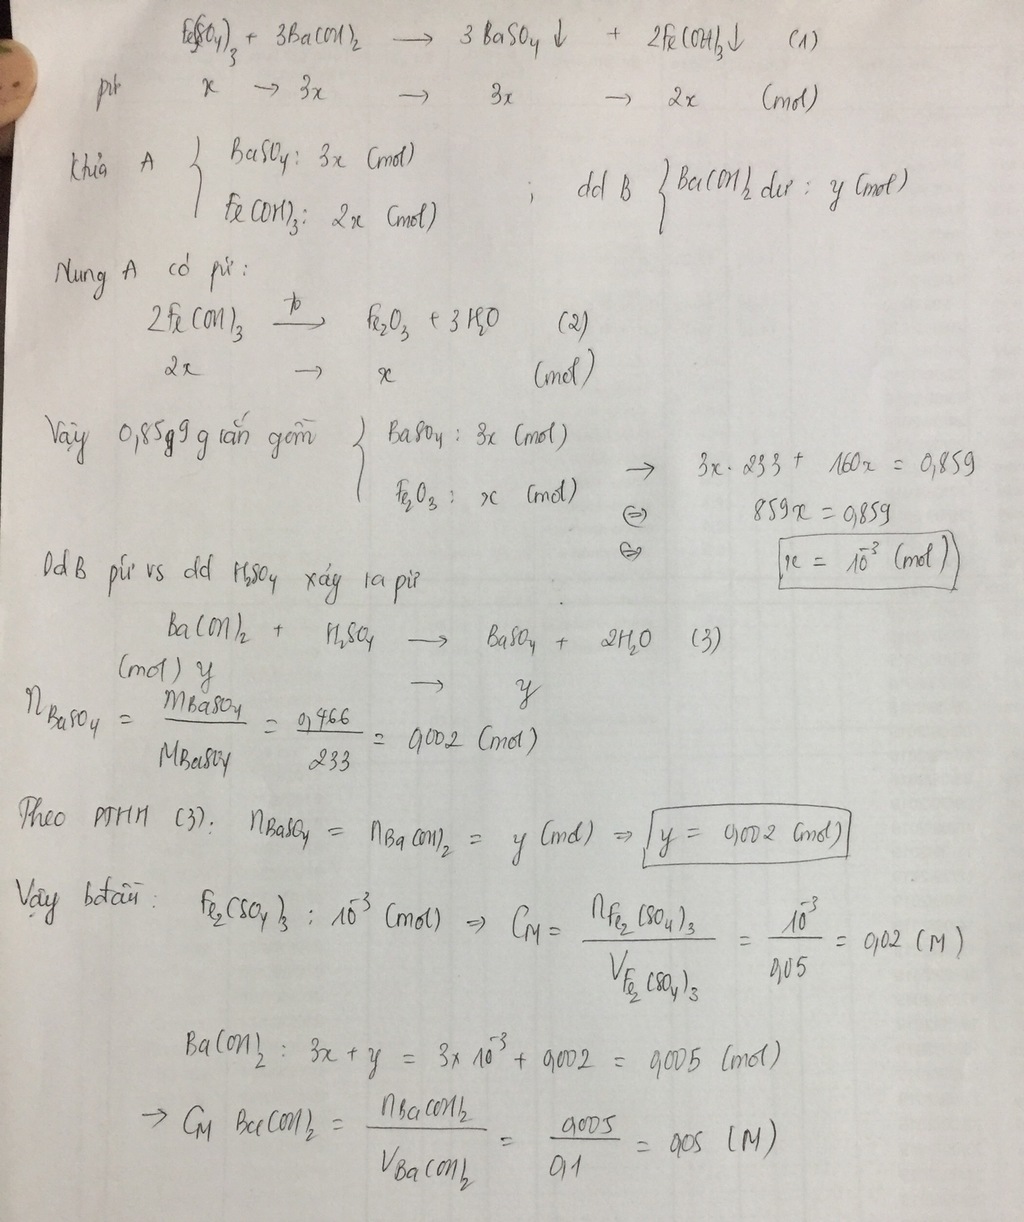 Fe2(SO4)3 + 3Ba(OH)2 → 3BaSO4↓ + 2Fe(OH)3↓ (1)
pư x → 3x → 3x → 2x (mol)
Khỉa A { BaSO4: 3x (mol) Fe(OH)3: 2x (mol) ; dd B { Ba(OH)2 dư: y (mol)
Nung A có pứ:
2Fe(OH)3 t° → Fe2O3 + 3H2O (2)
2x → x (mol)
Vậy 0,859 g rắn gồm { BaSO4: 3x (mol) Fe2O3: x (mol) → 3x. 233 + 160x = 0,859
⇔ 859x = 0,859
⇔ x = 10^-3 (mol)
Dd B pứ vs dd H2SO4 xảy ra pứ
Ba(OH)2 + H2SO4 → BaSO4 + 2H2O (3)
(mol) y → y
nBaSO4 = mBaSO4 / MBaSO4 = 0,466 / 233 = 0,002 (mol)
Theo PTHH (3): nBaSO4 = nBa(OH)2 = y (mol) ⇒ y = 0,002 (mol)
Vậy bđầu: Fe2(SO4)3: 10^-3 (mol) ⇒ CM = nFe2(SO4)3 / VFe2(SO4)3 = 10^-3 / 0,05 = 0,02 (M)
Ba(OH)2: 3x + y = 3x 10^-3 + 0,002 = 0,005 (mol)
→ CM Ba(OH)2 = nBa(OH)2 / VBa(OH)2 = 0,005 / 0,1 = 0,05 (M)